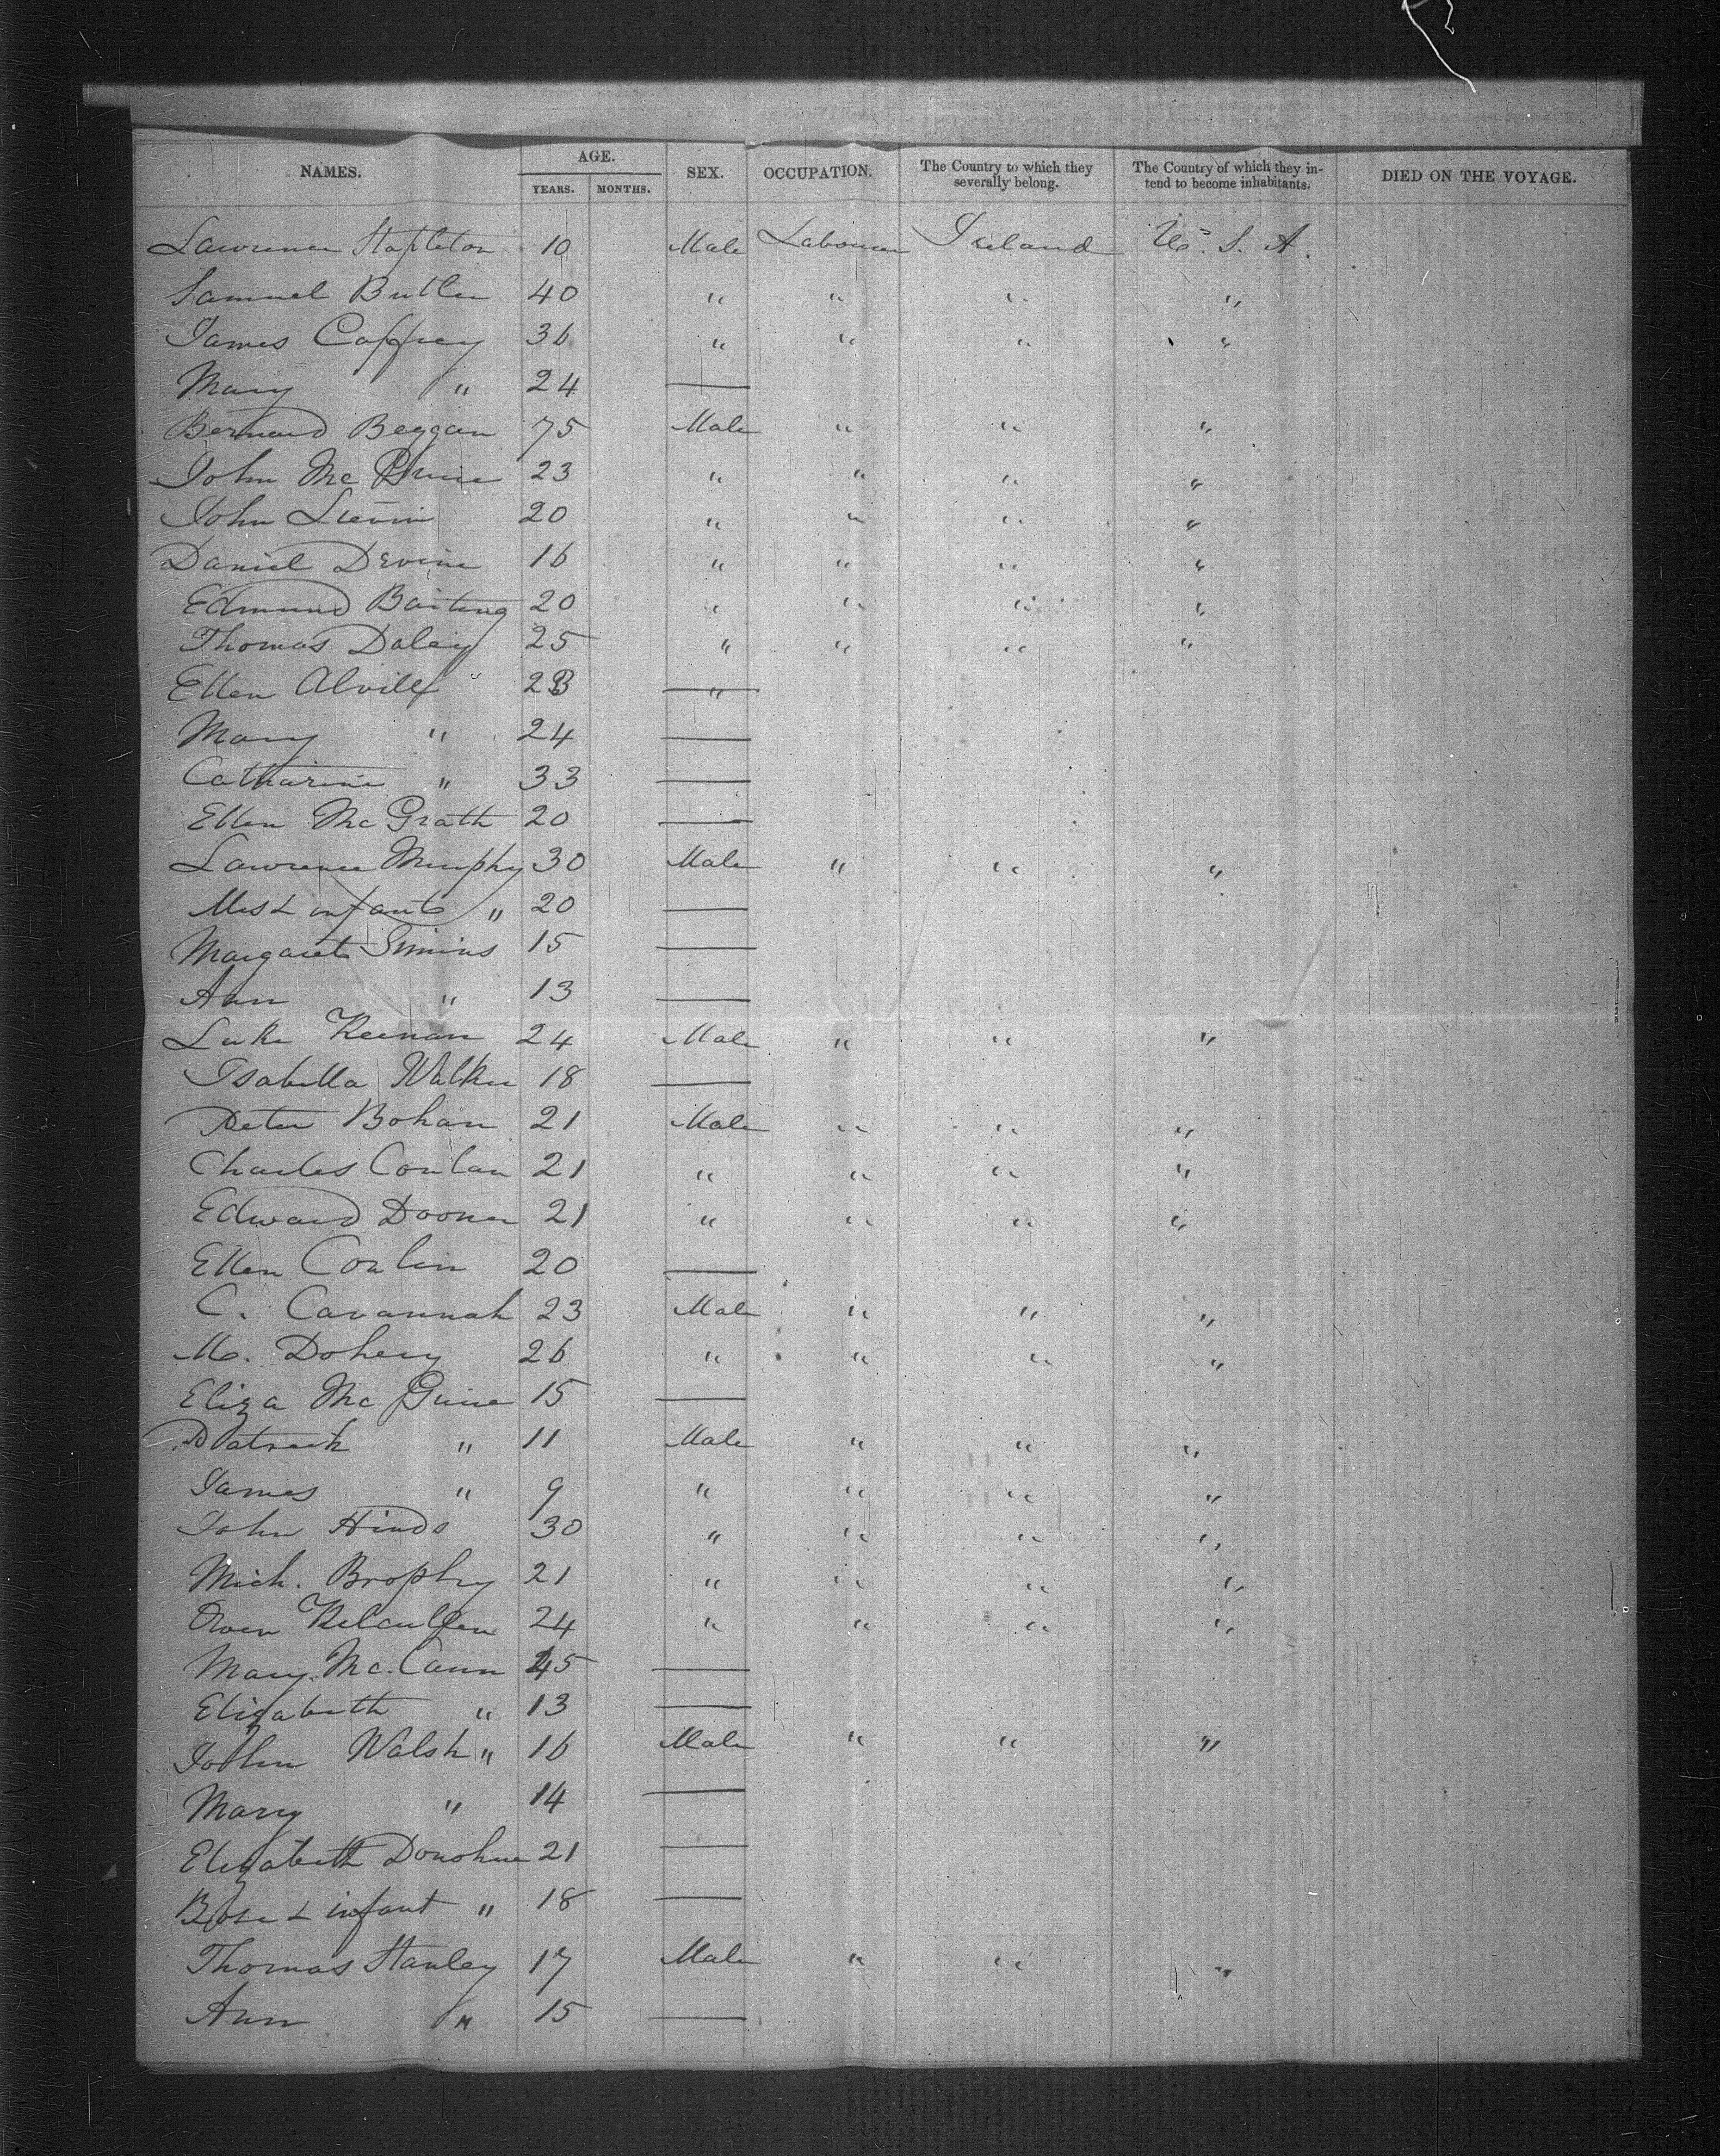 NAMES. AGE. YEARS. MONTHS. SEX. OCCUPATION. The Country to which they severally belong. The Country of which they intend to become inhabitants. DIED ON THE VOYAGE.
Lawrence Stapleton 10 Male Labourer Ireland U. S. A.
Samuel Butler 40 " " " "
James Caffrey 36 " " " "
Mary " 24 —
Bernard Beggan 75 Male " " "
John McGuire 23 " " " "
John 20 " " " "
Daniel Devine 16 " " " "
Edmund 20 " " " "
Thomas Daley 25 " " " "
Ellen " —
Mary " 24 —
Catharine " 33 —
Ellen McGrath 20 —
Lawrence Murphy 30 Male " " "
Mrs & infant " 20 —
Margaret Simins 15 —
Ann " 13 —
Luke Keenan 24 Male " " "
Isabella Walker 18 —
Peter Bohan 21 Male " " "
Charles Conlan 21 " " " "
Edward Dooner 21 " " " "
Ellen Conlin 20 —
C. Cavannah 23 Male " " "
M. Dohery 26 " " " "
Eliza McGuire 15 —
Patrick " 11 Male " " "
James " 9 " " " "
John Hinds 30 " " " "
Mich. Brophy 21 " " " "
Owen 24 " " " "
Mary McCann 45 —
Elizabeth " 13 —
John Walsh " 16 Male " " "
Mary " 14 —
Elizabeth Donohue 21 —
Rose & infant " 18 —
Thomas Stanley 17 Male " " "
Ann " 15 —